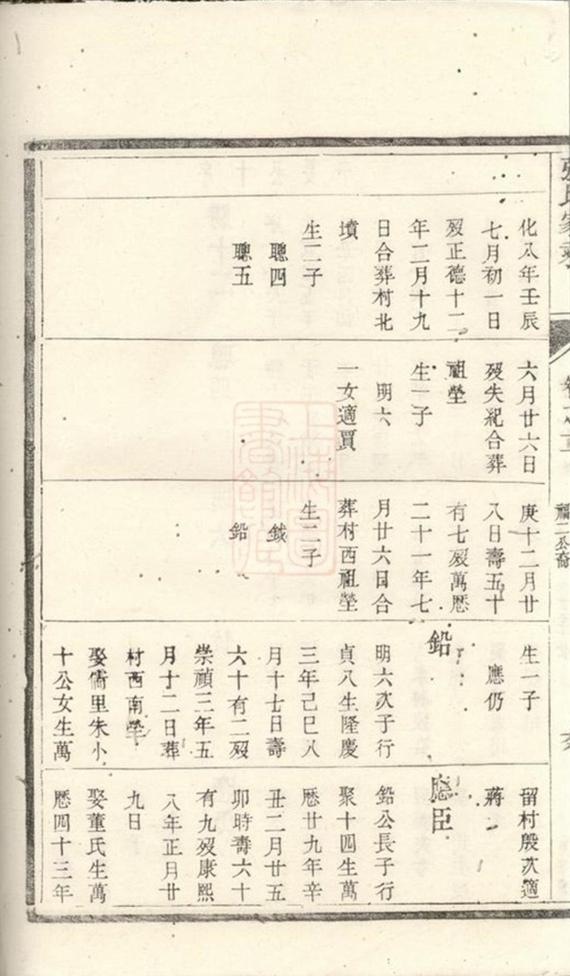 張氏家乘
化八年壬辰
七月初一日
歿正德十二
年二月十九
日合葬村北
墳
生二子
聰四
聰五
六月廿六日
歿失紀合葬
祖塋
生一子
明六
一女適賈
福二公裔
庚十二月廿
八日壽五十
有七歿萬厯
二十一年七
月廿六日合
葬村西祖塋
生二子
鉞
鉛
生一子
應仍
鉛
明六次子行
貞八生隆慶
三年己巳八
月十七日壽
六十有二歿
崇禎三年五
月十二日葬
村西南塋
娶儒里朱小
十公女生萬
留村殷次適
蔣
應臣
鉛公長子行
聚十四生萬
厯廿九年辛
丑二月廿五
卯時壽六十
有九歿康熙
八年正月廿
九日
娶董氏生萬
厯四十三年